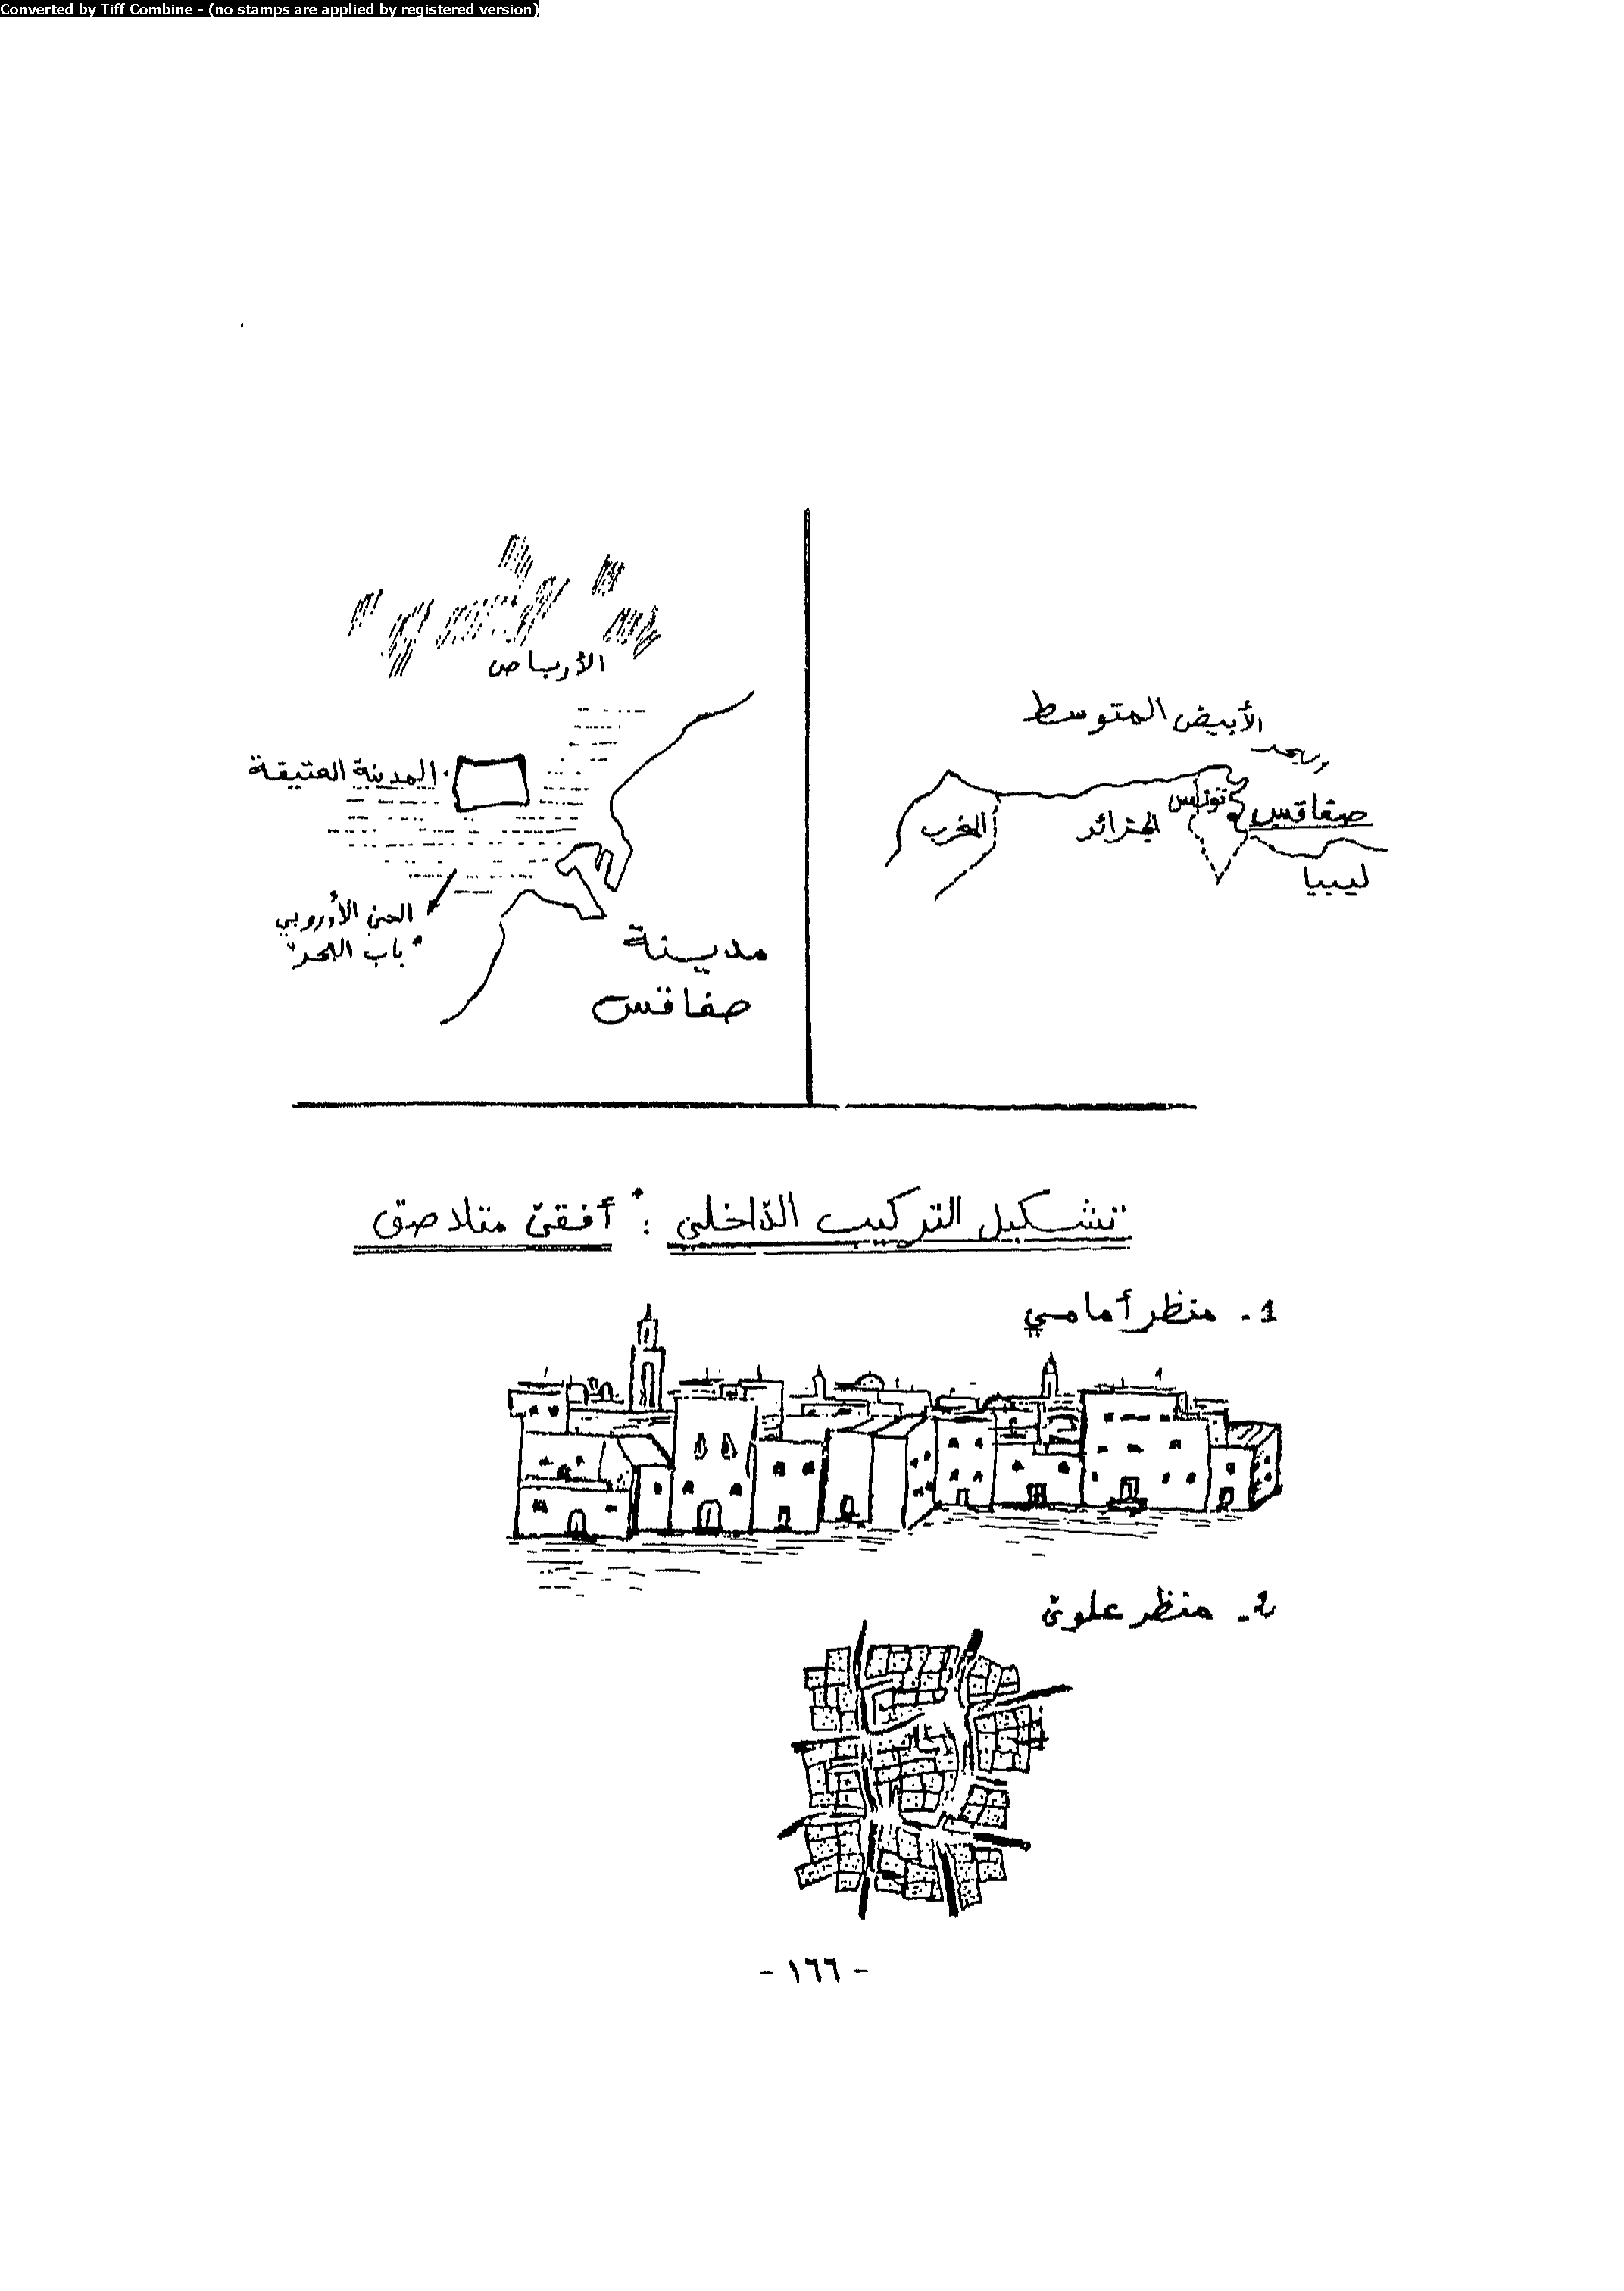 Converted by Tiff Combine - (no stamps are applied by registered version)
الأبيض المتوسط
صفاقس
تونس
الجزائر
المغرب
ليبيا
الأرباض
المدينة العتيقة
الحي الأوروبي
"باب البحر"
مدينة
صفاقس
تشكيل التركيب الداخلي : أفقي متلاصق
1 - منظر أمامي
2 - منظر علوي
- ١٦٦ -